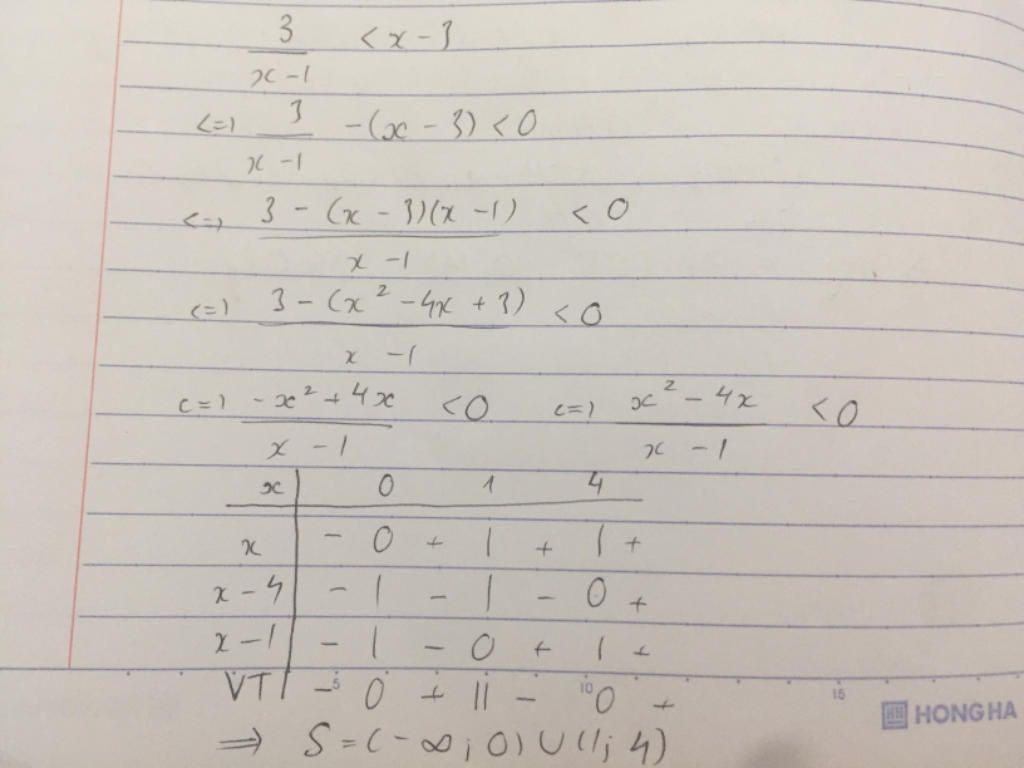 3/(x-1) < x-3
<=> 3/(x-1) -(x-3) < 0
<=> (3-(x-3)(x-1))/(x-1) < 0
<=> (3-(x²-4x+3))/(x-1) < 0
<=> (-x²+4x)/(x-1) < 0 <=> (x²-4x)/(x-1) < 0
x | 0 1 4
x | - 0 + | + | +
x-4 | - | - | - 0 +
x-1 | - | - 0 + | +
VT | - 0 + || - 0 +
5 10 15
HONG HA
=> S = (-∞; 0) ∪ (1; 4)